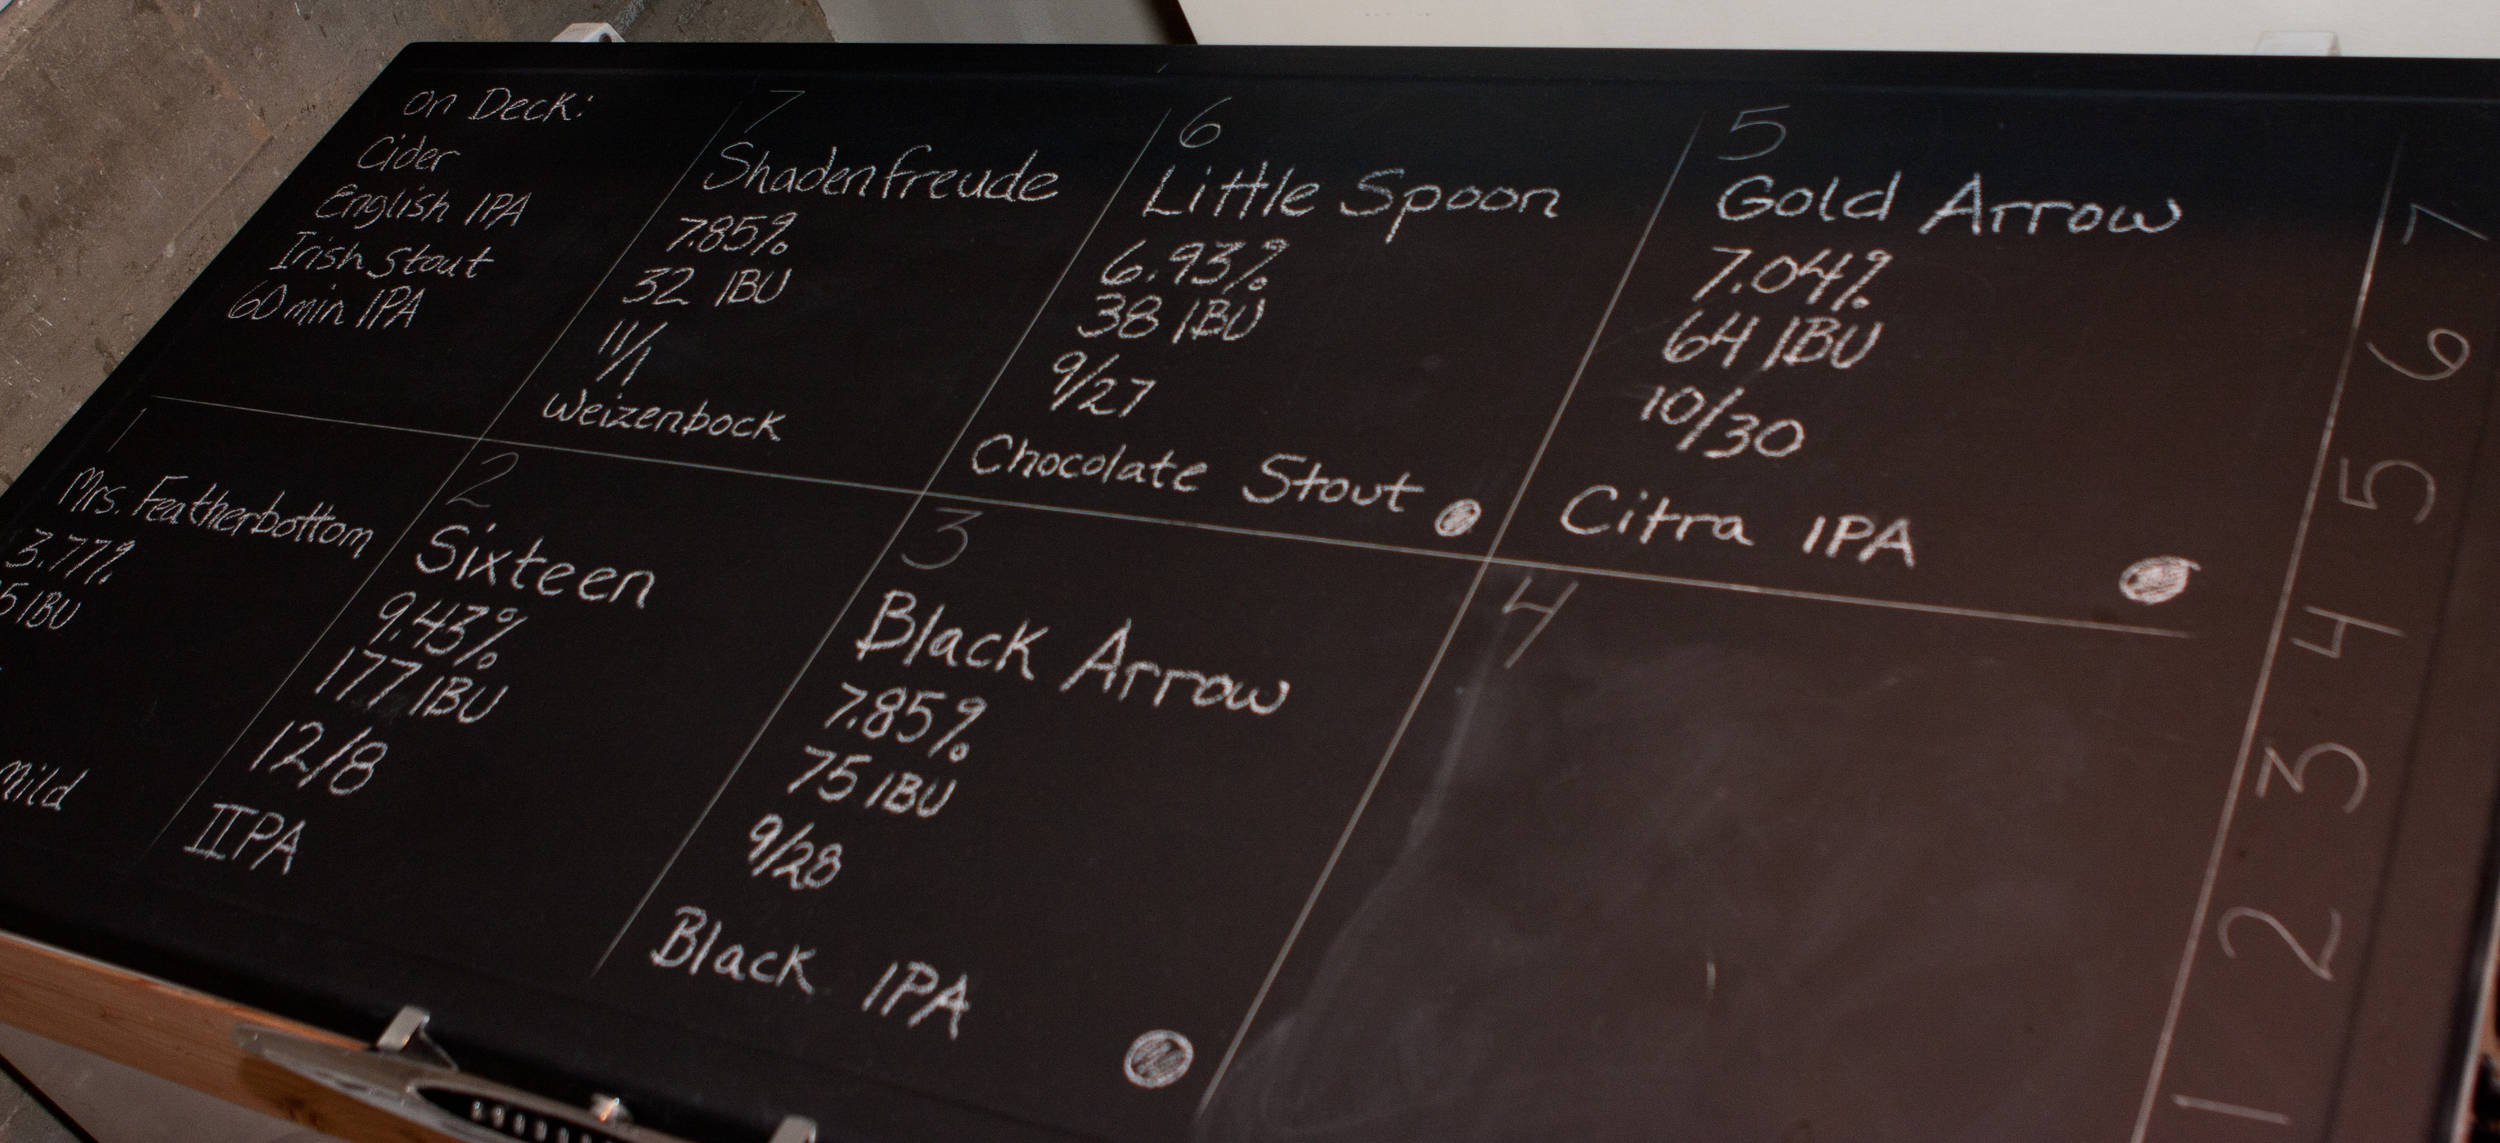 On Deck:
Cider
English IPA
Irish Stout
60 min IPA
7
Shadenfreude
7.85%
32 IBU
11/1
Weizenbock
6
Little Spoon
6.93%
38 IBU
9/27
Chocolate Stout
5
Gold Arrow
7.04%
64 IBU
10/30
Citra IPA
1
Mrs. Featherbottom
3.77%
5 IBU
mild
2
Sixteen
9.43%
177 IBU
12/8
IIPA
3
Black Arrow
7.85%
75 IBU
9/28
Black IPA
4
7
6
5
4
3
2
1